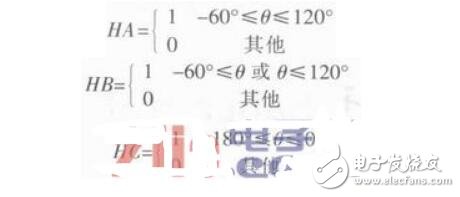 HA={ 1 -60°≤θ≤120°
0 其他
HB={ 1 -60°≤θ 或 θ≤120°
0 其他
HC={ 1 180°≤θ≤0
0 其他
电子发烧友
www.elecfans.com